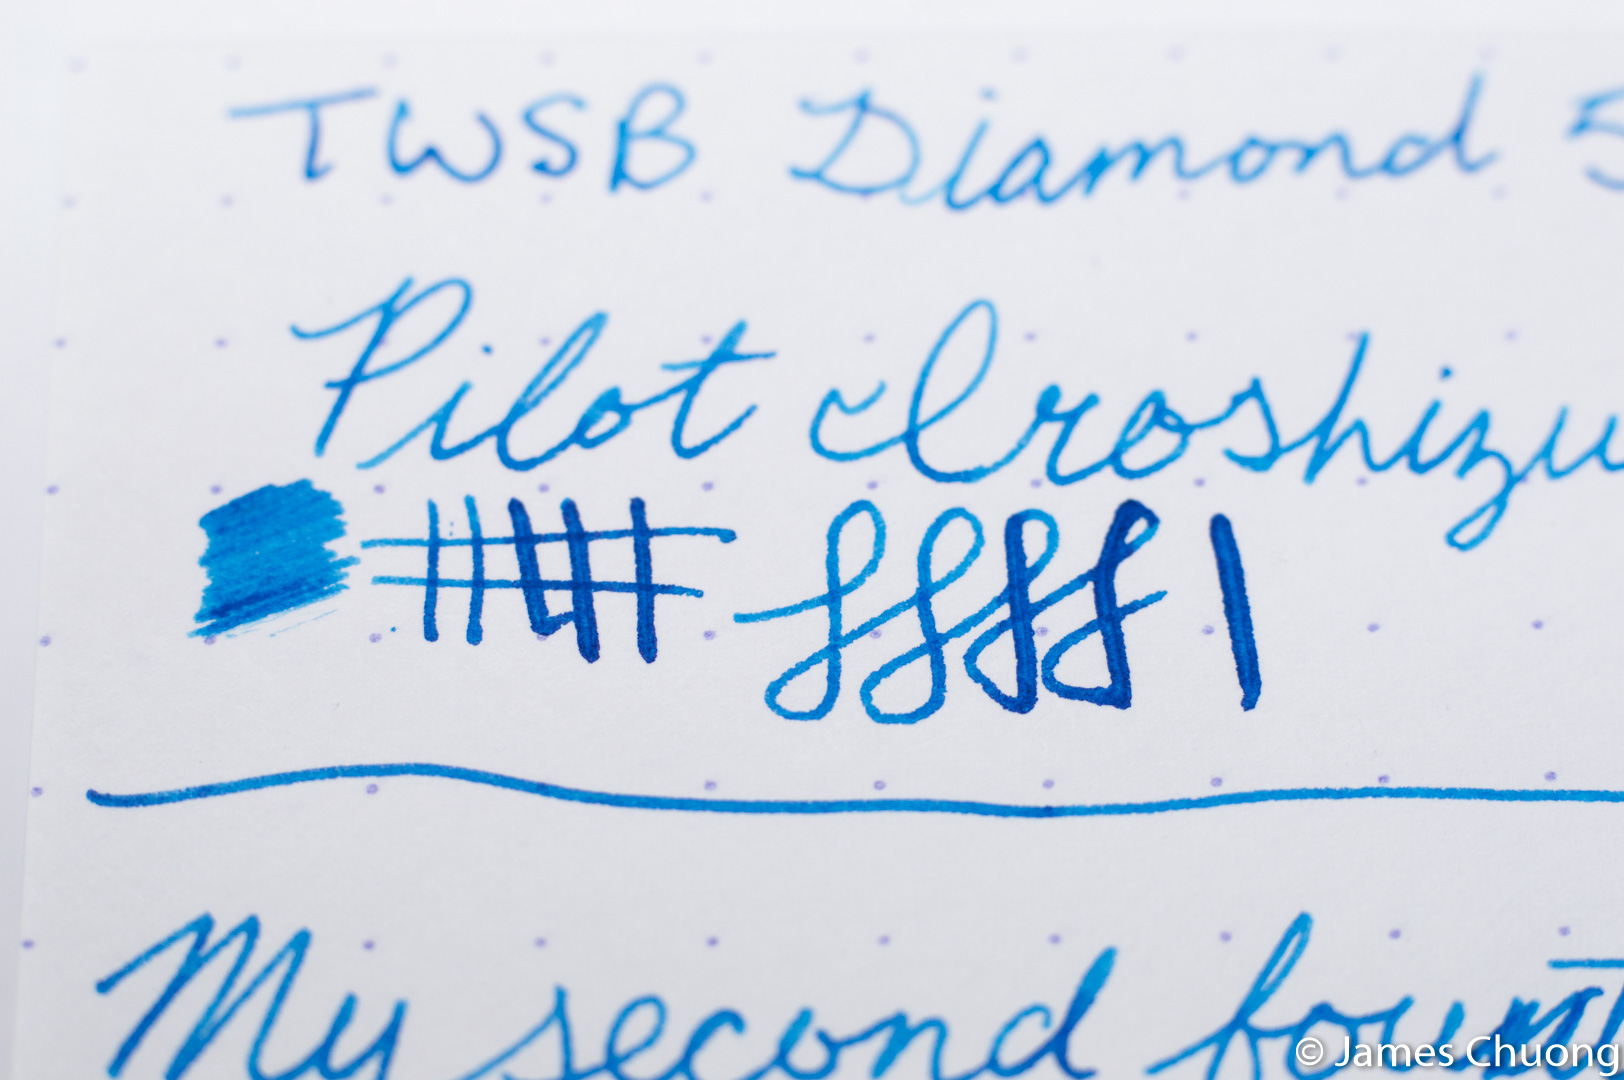 TWSB Diamond 5
Pilot Iroshizu
My second fount
© James Chuong